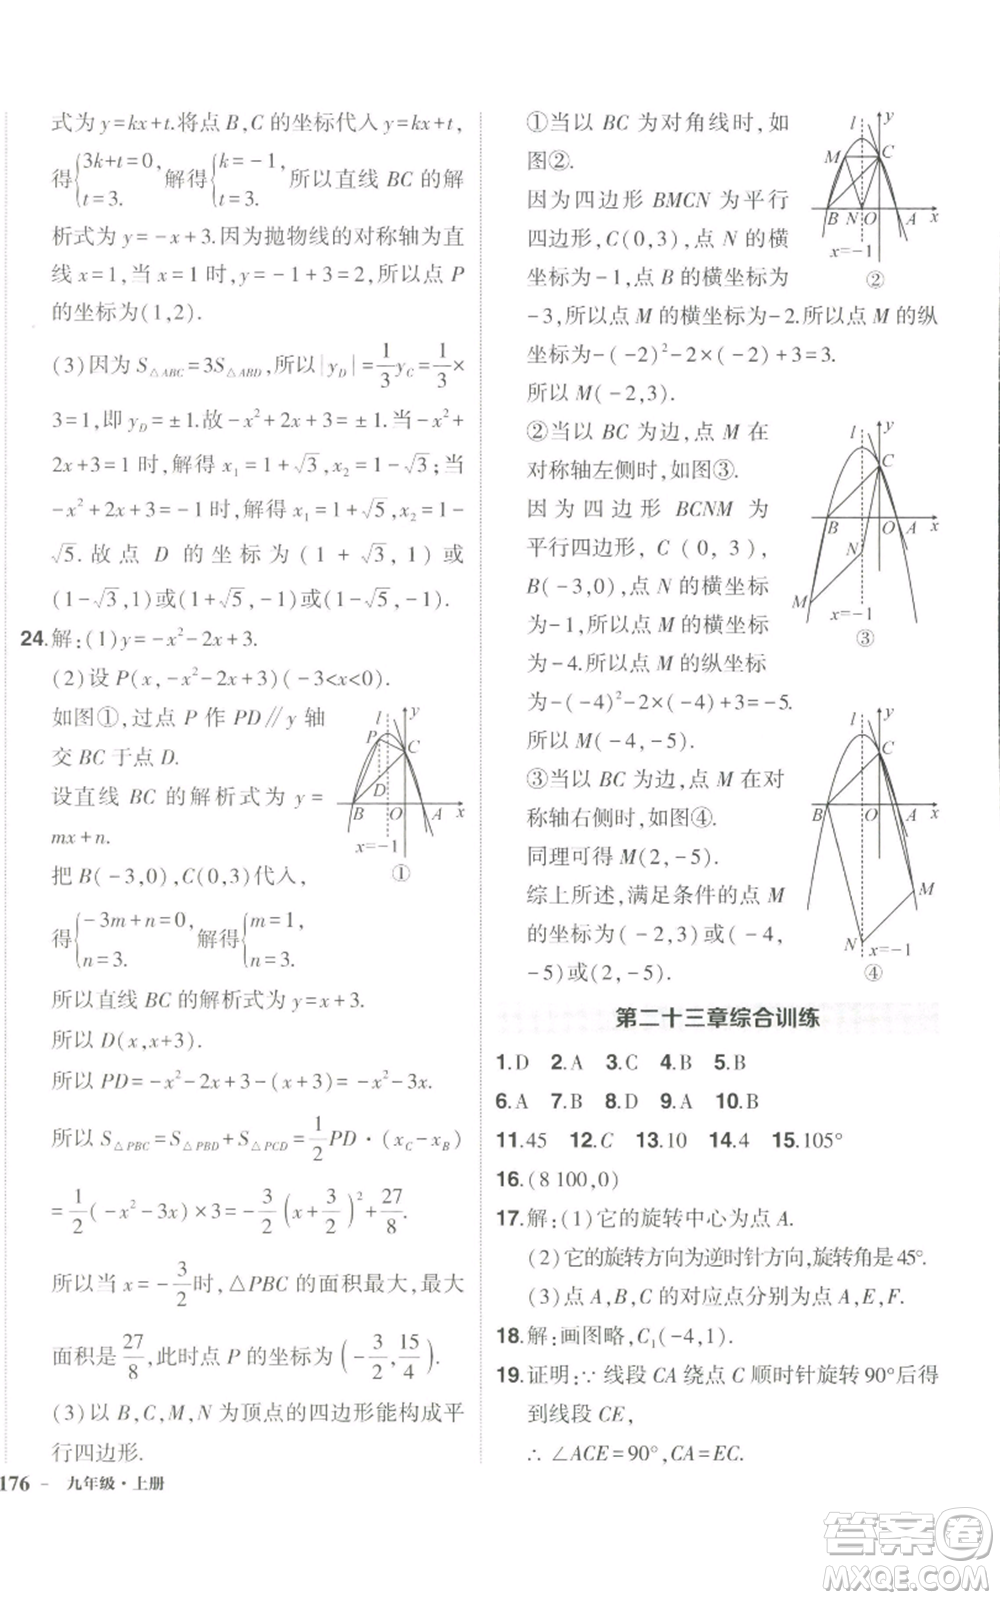 式为y=kx+t.将点B,C的坐标代入y=kx+t,
得{3k+t=0, t=3. 解得{k=-1, t=3. 所以直线BC的解
析式为y=-x+3.因为抛物线的对称轴为直
线x=1,当x=1时,y=-1+3=2,所以点P
的坐标为(1,2).
(3)因为S△ABC=3S△ABD,所以|y_D|=1/3y_C=1/3×
3=1,即y_D=±1.故-x²+2x+3=±1.当-x²+
2x+3=1时,解得x₁=1+√3,x₂=1-√3;当
-x²+2x+3=-1时,解得x₁=1+√5,x₂=1-
√5.故点D的坐标为(1+√3,1)或
(1-√3,1)或(1+√5,-1)或(1-√5,-1).
24.解:(1)y=-x²-2x+3.
(2)设P(x,-x²-2x+3)(-3<x<0).
如图①,过点P作PD∥y轴
交BC于点D.
设直线BC的解析式为y=
mx+n.
把B(-3,0),C(0,3)代入,
得{-3m+n=0, n=3. 解得{m=1, n=3.
所以直线BC的解析式为y=x+3.
所以D(x,x+3).
所以PD=-x²-2x+3-(x+3)=-x²-3x.
所以S△PBC=S△PBD+S△PCD=1/2PD·(x_C-x_B)
=1/2(-x²-3x)×3=-3/2(x+3/2)²+27/8.
所以当x=-3/2时,△PBC的面积最大,最大
面积是27/8,此时点P的坐标为(-3/2,15/4).
(3)以B,C,M,N为顶点的四边形能构成平
行四边形.
l y P C D B O A x x=-1
①
176 - 九年级·上册
①当以BC为对角线时,如
图②.
因为四边形BMCN为平行
四边形,C(0,3),点N的横
坐标为-1,点B的横坐标为
-3,所以点M的横坐标为-2.所以点M的纵
坐标为-(-2)²-2×(-2)+3=3.
所以M(-2,3).
l y M C B N O A x x=-1
②
②当以BC为边,点M在
对称轴左侧时,如图③.
因为四边形BCNM为
平行四边形,C(0,3),
B(-3,0),点N的横坐标
为-1,所以点M的横坐标
为-4.所以点M的纵坐标
为-(-4)²-2×(-4)+3=-5.
所以M(-4,-5).
l y C B O A x N M x=-1
③
③当以BC为边,点M在对
称轴右侧时,如图④.
同理可得M(2,-5).
综上所述,满足条件的点M
的坐标为(-2,3)或(-4,
-5)或(2,-5).
l y C B O A x M N x=-1
④
第二十三章综合训练
1.D 2.A 3.C 4.B 5.B
6.A 7.B 8.D 9.A 10.B
11.45 12.C 13.10 14.4 15.105°
16.(8 100,0)
17.解:(1)它的旋转中心为点A.
(2)它的旋转方向为逆时针方向,旋转角是45°.
(3)点A,B,C的对应点分别为点A,E,F.
18.解:画图略,C₁(-4,1).
19.证明:∵线段CA绕点C顺时针旋转90°后得
到线段CE,
∴∠ACE=90°,CA=EC.
答案圈
MXQE.COM